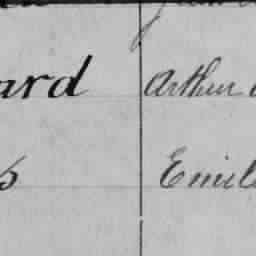 ard Arthur
s Emil